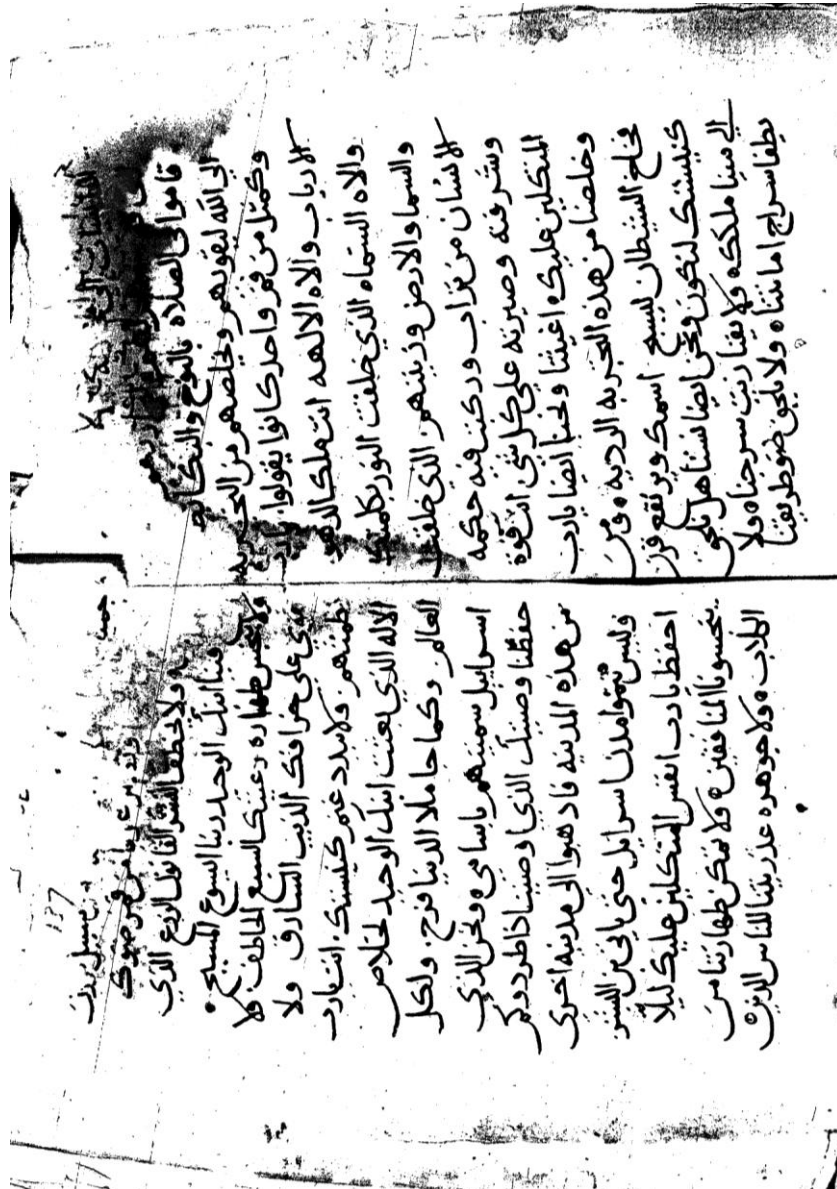 قاموا الى الصلاه بالنوح والبكا
الى الله ليقويهم ويخلصهم من التجربه
وكمثل من فم واحد كانوا يقولوا. يارب
الارباب والاه الالهه انت ملك الدهور
والاه السماء الذي خلقت النور بكلمتك
والسما والارض وزينتهم الذي خلقت
الانسان من تراب وركبت فيه حكمه
وشرفته وصيرته على كل شي انت قوة
المتكلين عليك اغيثنا ونجنا ايضا يارب
وخلصنا من هذه التجربه الرديه ومن
فخاخ الشيطان ليسبح اسمك ويرتفع قرن
كنيستك لنكون ونحن ايضا نلحق
الي مينا ملكك ولا سرجنا ولا
يطفا سراج امانتنا ولا يلحق ضو طريقنا
137
ولا الذي
فينا ابنك الوحيد ربنا ايسوع المسيح
ولا ينجس طهارة رعيتك السبع الخاطف فلا
على خرافك الذيب السارق ولا
ولا يبدد غنم كنيستك. انت يارب
الاله الذي بعثت ابنك الوحيد لخلاص
العالم وكما الدنيا فرح. ولكل
اسراييل سميتهم باسامي ونحن الذي
حفظنا وصيتك الذي اوصيتنا اذا طردوكم
من هذه المدينه فاذهبوا الى مدينه اخرى
وليس تتموا مدن اسرايل حتى ياتي بن البشر
احفظ يارب انفس المتكلين عليك ليلا
ينجسونا المنافقين ولا تمكن طهارتنا من
الكلاب ولا جوهرة عذريتنا للناس الذين